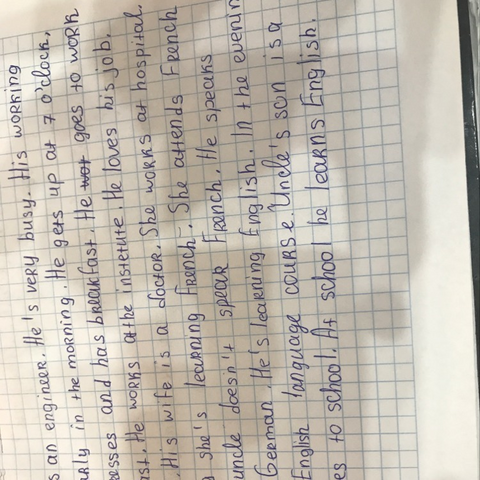 s an engineer. He's very busy. His working
rly in the morning. He gets up at 7 o'clock,
esses and has breakfast. He goes to work
ast. He works atthe institute. He loves his job.
. His wife is a doctor. She works at hospital.
she's learning French. She attends French
uncle doesn't speak French. He speaks
German. He's learning English. In the evenin
English language course. Uncle's son is a
es to school. At school he learns English.